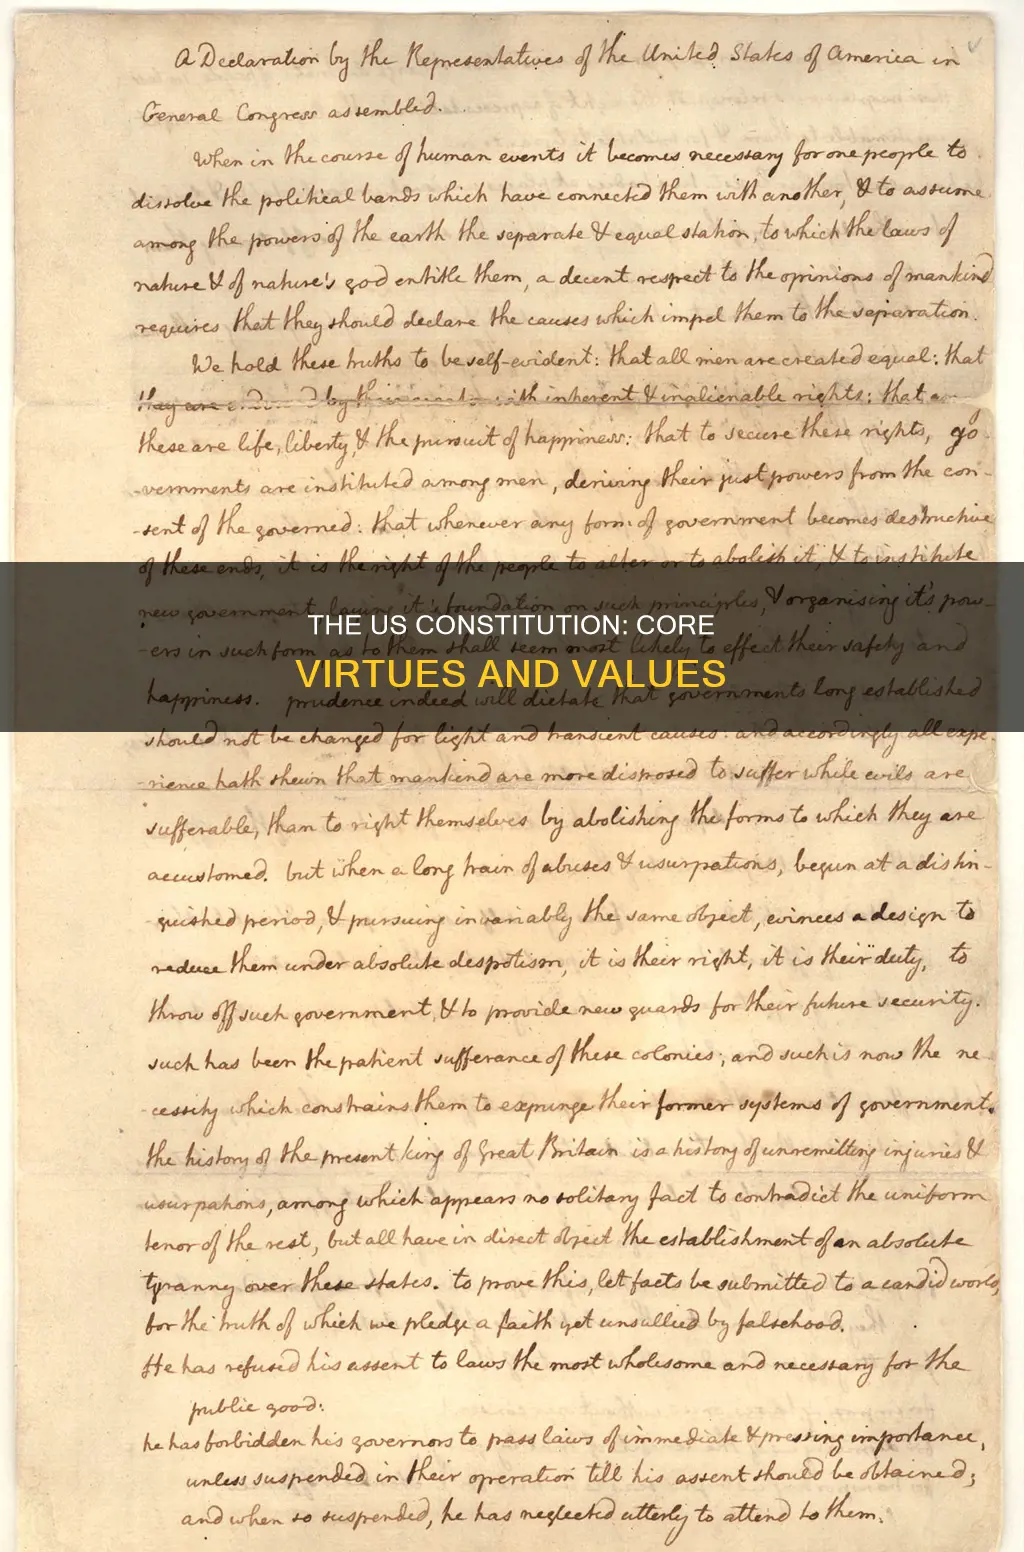 A Declaration by the Representatives of the United States of America in
General Congress assembled.
When in the course of human events it becomes necessary for one people to
dissolve the political bands which have connected them with another, & to assume
among the powers of the earth the separate & equal station, to which the laws of
nature & of nature's god entitle them, a decent respect to the opinions of mankind
requires that they should declare the causes which impel them to the separation.
We hold these truths to be self-evident: that all men are created equal: that
they are by their with inherent & inalienable rights: that
these are life, liberty, & the pursuit of happiness: that to secure these rights, go-
-vernments are instituted among men, deriving their just powers from the con-
-sent of the governed: that whenever any form of government becomes destructive
of these ends, it is the right of the people to alter or to abolish it, & to institute
new government, laying it's foundation on such principles, & organising it's pow-
THE US CONSTITUTION: CORE
-ers in such form as to them shall seem most likely to effect their safety and
VIRTUES AND VALUES
happiness. prudence indeed will dictate that governments long established
should not be changed for light and transient causes: and accordingly all expe-
-rience hath shewn that mankind are more disposed to suffer while evils are
sufferable, than to right themselves by abolishing the forms to which they are
accustomed. but when a long train of abuses & usurpations, begun at a distin-
-guished period, & pursuing invariably the same object, evinces a design to
reduce them under absolute despotism, it is their right, it is their duty, to
throw off such government, & to provide new guards for their future security.
such has been the patient sufferance of these colonies; and such is now the ne-
-cessity which constrains them to expunge their former systems of government.
the history of the present king of Great Britain is a history of unremitting injuries &
usurpations, among which appears no solitary fact to contradict the uniform
tenor of the rest, but all have in direct object the establishment of an absolute
tyranny over these states. to prove this, let facts be submitted to a candid world,
for the truth of which we pledge a faith yet unsullied by falsehood.
He has refused his assent to laws the most wholesome and necessary for the
public good:
he has forbidden his governors to pass laws of immediate & pressing importance,
unless suspended in their operation till his assent should be obtained;
and when so suspended, he has neglected utterly to attend to them.